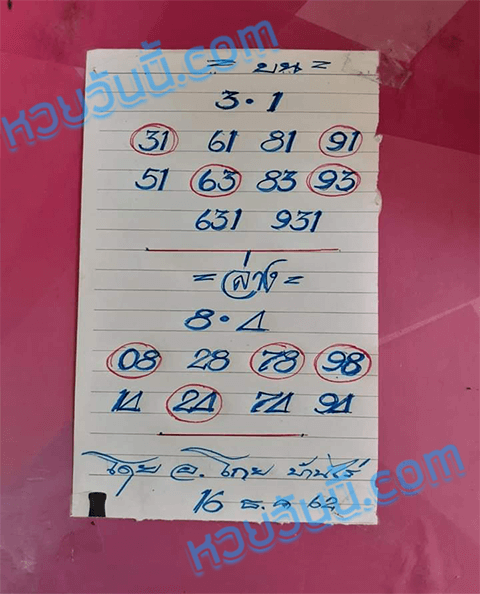 = บน =
3 · 1
31 61 81 91
51 63 83 93
631 931
= ล่าง =
8 · 4
08 28 78 98
14 24 74 94
โดย อ. โกย บ้านไร่
16 ธ.ค 62
หวยวันนี้.com
หวยวันนี้.com